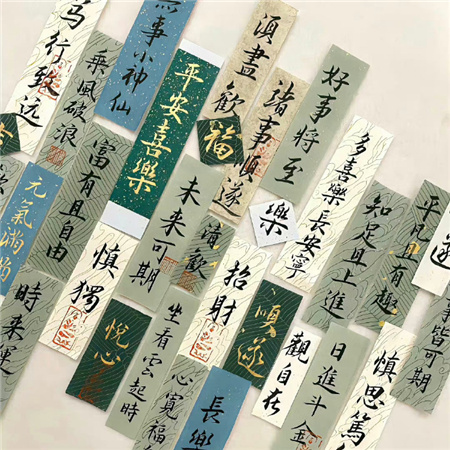 馬行致远
乘風破浪
無事小神仙
平安喜樂
須盡歡
福
諸事順遂
好事將至
多喜樂長安寧
知足且上進
平凡且有趣
元氣滿滿
富有且自由
慎獨
未來可期
清歡
樂
招財
順遂
觀自在
日進斗金
慎思篤
事皆可期
遂
時來運
悦心
坐看雲起時
心寬福
長樂